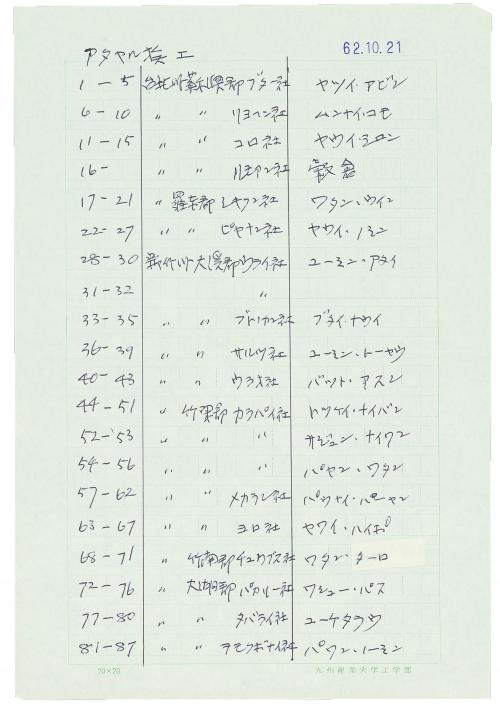 アタヤル族 エ
62.10.21
1 - 5 台北州蘇澳郡ブター社 ヤツイ・アビン
6 - 10 〃 〃 リヨヘン社 ムンナイ・コモ
11 - 15 〃 〃 コロ社 ヤウイ・シロン
16 - 〃 〃 社 穀倉
17 - 21 〃 羅東郡シキクン社 ワタン・ウイン
22 - 27 〃 〃 ピヤナン社 ヤウイ・ノミン
28 - 30 新竹州大渓郡ウライ社 ユーミン・アタイ
31 - 32 〃
33 - 35 〃 〃 ブトノカン社 ブタイ・ナウイ
36 - 39 〃 〃 サルツ社 ユーミン・トーヤウ
40 - 43 〃 〃 ウラオ社 バット・アスン
44 - 51 〃 竹東郡カラパイ社 トツケイ・ナイバン
52 - 53 〃 〃 〃 サジュン・ナイワン
54 - 56 〃 〃 〃 パヤン・ワタン
57 - 62 〃 〃 メカラン社 パウナイ・パーヤン
63 - 67 〃 〃 ヨロ社 ヤワイ・ハイポ
68 - 71 〃 竹南郡 社 ワタン・ターロ
72 - 76 〃 大湖郡パカリー社 ワシュー・パス
77 - 80 〃 〃 タバライ社 ユーケタラウ
81 - 87 〃 〃 社 パワン・ノーミン
20×20
九州産業大学工学部